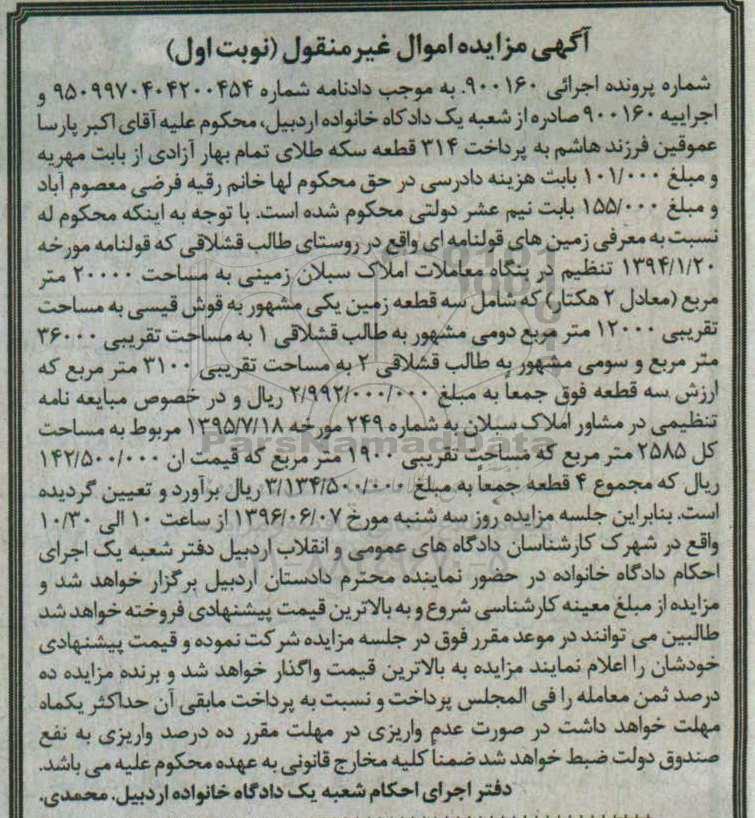 آگهی مزایده اموال غیر منقول (نوبت اول)
شماره پرونده اجرائی ۹۰۰۱۶۰. به موجب دادنامه شماره ۹۵۰۹۹۷۰۴۰۴۲۰۰۴۵۴ و
اجراییه ۹۰۰۱۶۰ صادره از شعبه یک دادگاه خانواده اردبیل، محکوم علیه آقای اکبر پارسا
عموقین فرزند هاشم به پرداخت ۳۱۴ قطعه سکه طلای تمام بهار آزادی از بابت مهریه
و مبلغ ۱۰۱/۰۰۰ بابت هزینه دادرسی در حق محکوم لها خانم رقیه فرضی معصوم آباد
و مبلغ ۱۵۵/۰۰۰ بابت نیم عشر دولتی محکوم شده است. با توجه به اینکه محکوم له
نسبت به معرفی زمین های قولنامه ای واقع در روستای طالب قشلاقی که قولنامه مورخه
۱۳۹۴/۱/۲۰ تنظیم در بنگاه معاملات املاک سبلان زمینی به مساحت ۲۰۰۰۰ متر
مربع (معادل ۲ هکتار) که شامل سه قطعه زمین یکی مشهور به قوش قیسی به مساحت
تقریبی ۱۲۰۰۰ متر مربع دومی مشهور به طالب قشلاقی ۱ به مساحت تقریبی ۳۶۰۰۰
متر مربع و سومی مشهور به طالب قشلاقی ۲ به مساحت تقریبی ۳۱۰۰ متر مربع که
ارزش سه قطعه فوق جمعاً به مبلغ ۲/۹۹۲/۰۰۰/۰۰۰ ریال و در خصوص مبایعه نامه
تنظیمی در مشاور املاک سبلان به شماره ۲۴۹ مورخه ۱۳۹۵/۷/۱۸ مربوط به مساحت
کل ۲۵۸۵ متر مربع که مساحت تقریبی ۱۹۰۰ متر مربع که قیمت ان ۱۴۲/۵۰۰/۰۰۰
ریال که مجموع ۴ قطعه جمعاً به مبلغ ۳/۱۳۴/۵۰۰/۰۰۰ ریال برآورد و تعیین گردیده
است. بنابراین جلسه مزایده روز سه شنبه مورخ ۱۳۹۶/۰۶/۰۷ از ساعت ۱۰ الی ۱۰/۳۰
واقع در شهرک کارشناسان دادگاه های عمومی و انقلاب اردبیل دفتر شعبه یک اجرای
احکام دادگاه خانواده در حضور نماینده محترم دادستان اردبیل برگزار خواهد شد و
مزایده از مبلغ معینه کارشناسی شروع و به بالاترین قیمت پیشنهادی فروخته خواهد شد
طالبین می توانند در موعد مقرر فوق در جلسه مزایده شرکت نموده و قیمت پیشنهادی
خودشان را اعلام نمایند مزایده به بالاترین قیمت واگذار خواهد شد و برنده مزایده ده
درصد ثمن معامله را فی المجلس پرداخت و نسبت به پرداخت مابقی آن حداکثر یکماه
مهلت خواهد داشت در صورت عدم واریزی در مهلت مقرر ده درصد واریزی به نفع
صندوق دولت ضبط خواهد شد ضمناً کلیه مخارج قانونی به عهده محکوم علیه می باشد.
دفتر اجرای احکام شعبه یک دادگاه خانواده اردبیل. محمدی.
ParsNamadData